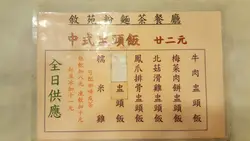 粉麵茶餐廳
中式盅頭飯 廿二元
牛肉盅頭飯
梅菜肉餅盅頭飯
北菇滑雞盅頭飯
鳳爪排骨盅頭飯
盅頭飯
糯米雞
全日供應